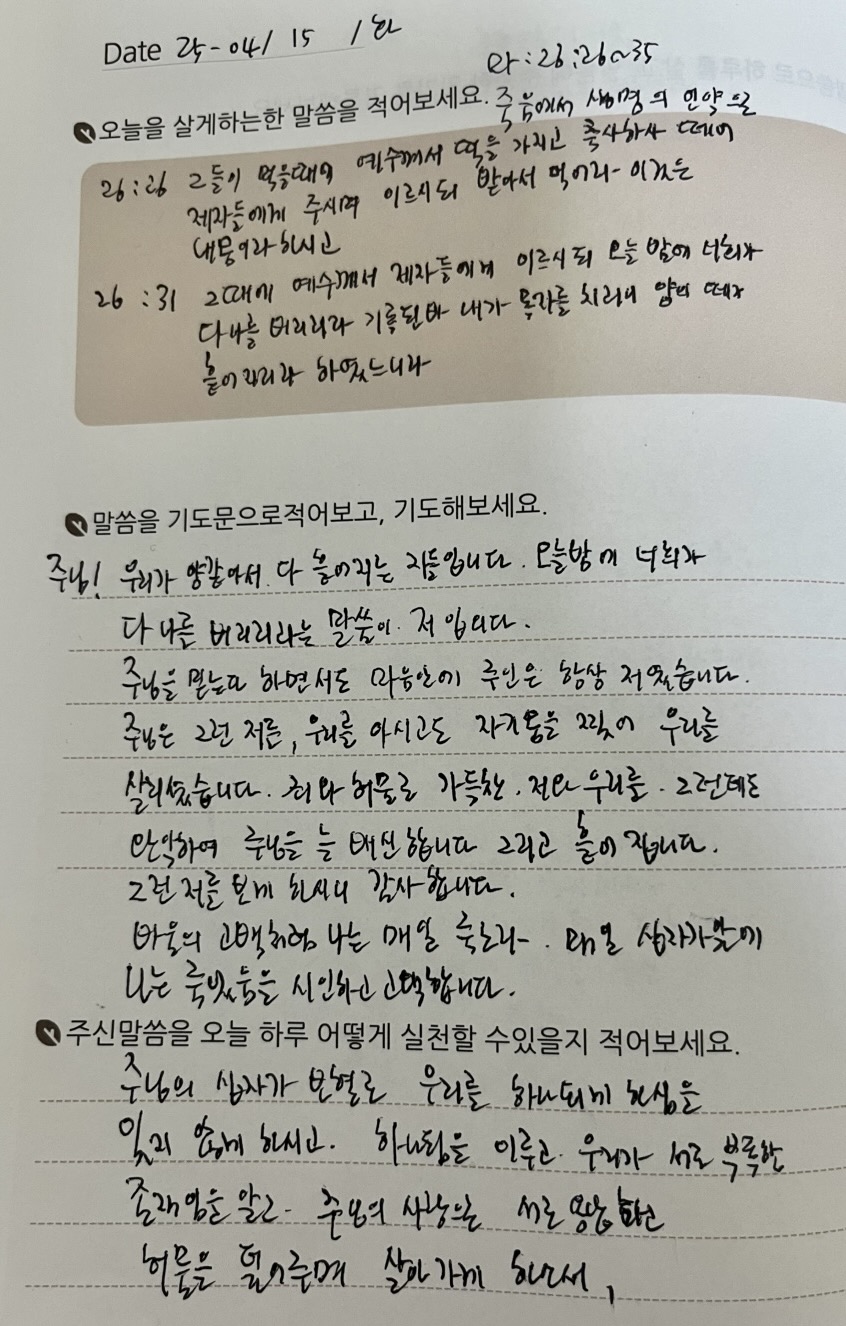 Date 25-04/ 15 /화
마:26:26~35
오늘을 살게하는한 말씀을 적어보세요. 죽음에서 생명의 언약으로
26:26 그들이 먹을때에 예수께서 떡을 가지고 축사하사 떼어
제자들에게 주시며 이르시되 받아서 먹어라 이것은
내몸이라하시고
26:31 그때에 예수께서 제자들에게 이르시되 오늘 밤에 너희가
다 나를 버리리라 기록된바 내가 목자를 치리니 양의 떼가
흩어지리라 하였느니라
말씀을 기도문으로적어보고, 기도해보세요.
주님! 우리가 양같아서 다 흩어지는 자들입니다. 오늘밤에 너희가
다 나를 버리리라는 말씀이. 저 입니다.
주님을 믿는다 하면서도 마음안에 주인은 항상 저였습니다.
주님은 그런 저를, 우리를 아시고도 자기몸을 찢어 우리를
살리셨습니다. 죄와 허물로 가득찬. 저와 우리를. 그런데도
연약하여 주님을 늘 배신합니다 그리고 흩어집니다.
그런 저를 보게 하시니 감사합니다.
바울의 고백처럼 나는 매일 죽노라-. 매일 십자가앞에
나는 죽었음을 시인하고 고백합니다.
주신말씀을 오늘 하루 어떻게 실천할 수있을지 적어보세요.
주님의 십자가 보혈로 우리를 하나되게 하심을
잊지 않게 하시고. 하나됨을 이루고. 우리가 서로 부족한
존재임을 알고. 주님의 사랑으로 서로 용납하고
허물을 덮어주며 살아가게 하소서,